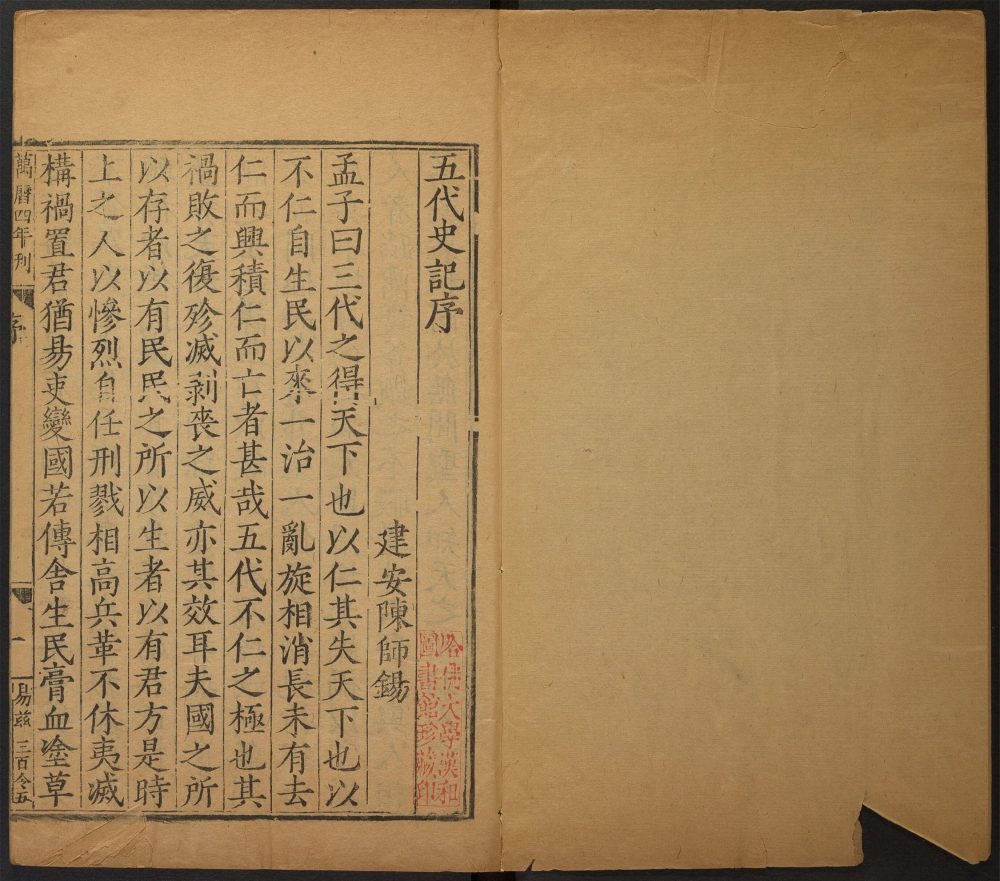 五代史記序
建安陳師錫
孟子曰三代之得天下也以仁其失天下也以
不仁自生民以來一治一亂旋相消長未有去
仁而興積仁而亡者甚哉五代不仁之極也其
禍敗之復殄滅剥喪之威亦其效耳夫國之所
以存者以有民民之所以生者以有君方是時
上之人以慘烈自任刑戮相高兵革不休夷滅
構禍置君猶易吏變國若傳舎生民膏血塗草
萬曆四年刊
序
一
易兹 三百令五
哈佛大學漢和
圖書館珍藏印